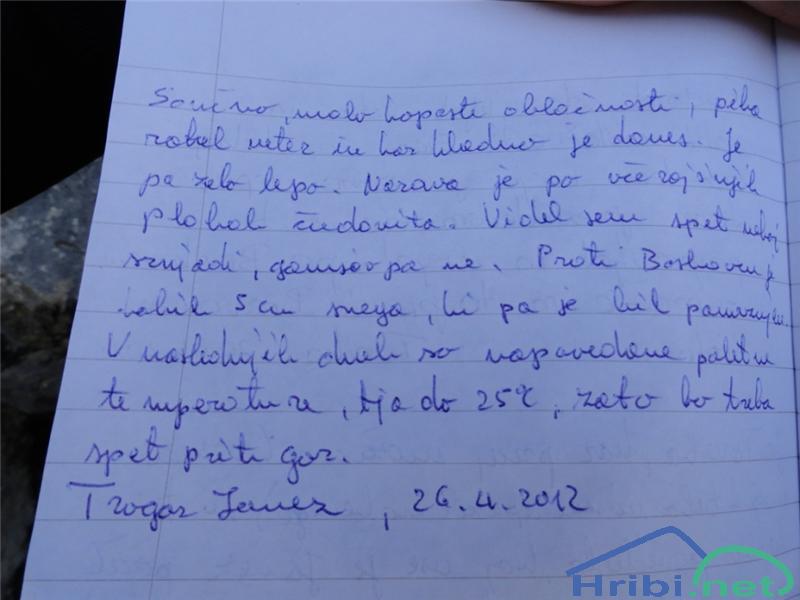 Sončno, malo kopaste oblačnosti, piha
rahel veter in kar hladno je danes. Je
pa zelo lepo. Narava je po včerajšnjih
plohah čudovita. Videl sem spet nekaj
srnjadi, gamsov pa ne. Proti
5 cm snega, ki pa je bil
V naslednjih dneh so napovedane poletne
temperature, tja do 25°C, zato bo treba
spet priti gor.
Trogar Janez, 26.4.2012
Hribi.net